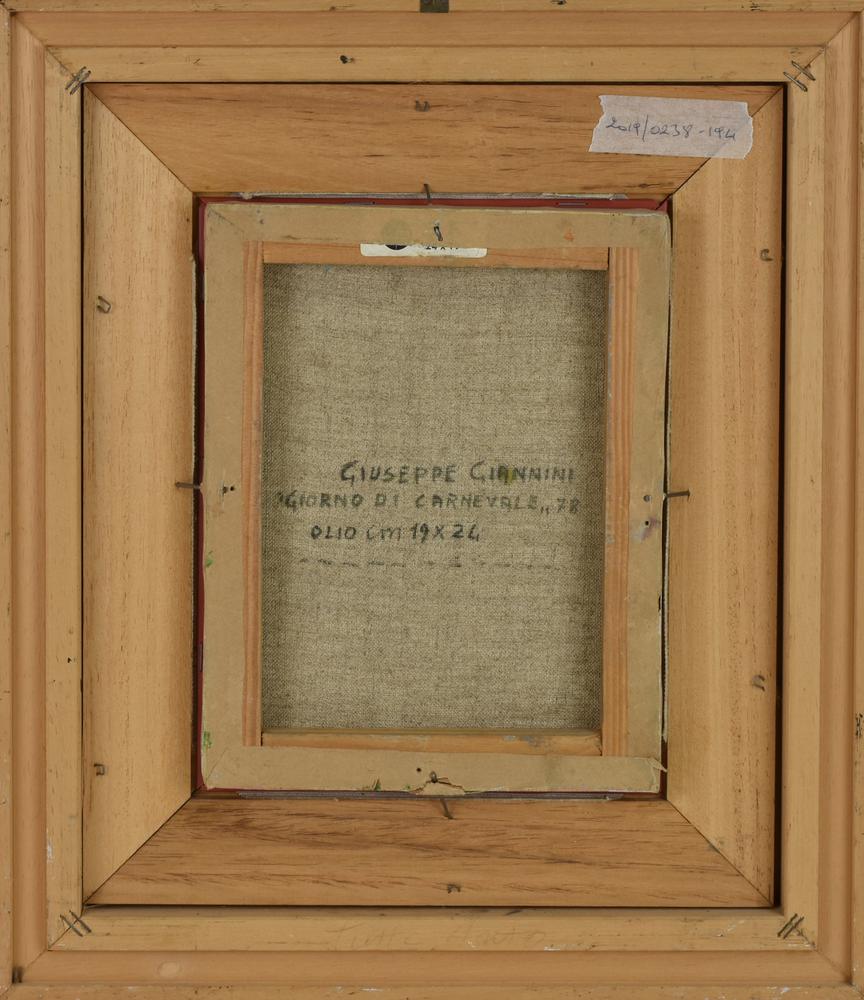 2019/0238-194
GIUSEPPE GIANNINI
"GIORNO DI CARNEVALE„ 78
OLIO cm 19X24